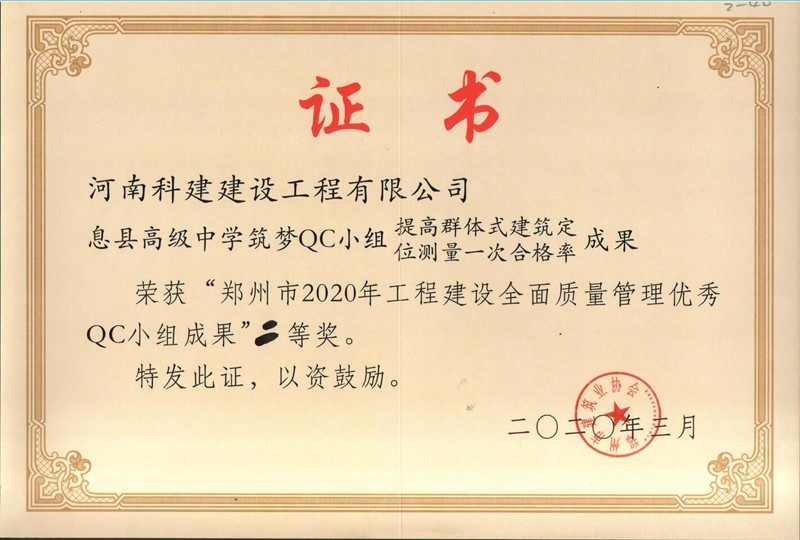 2-40
证 书
河南科建建设工程有限公司
息县高级中学筑梦QC小组提高群体式建筑定位测量一次合格率成果
荣获“郑州市2020年工程建设全面质量管理优秀
QC小组成果”二等奖。
特发此证，以资鼓励。
郑州市建筑业协会
二〇二〇年三月